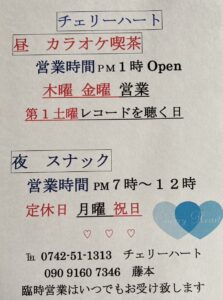 チェリーハート
昼 カラオケ喫茶
営業時間PM１時 Open
木曜 金曜 営業
第１土曜レコードを聴く日
夜 スナック
営業時間 PM７時～１２時
定休日 月曜 祝日
♡ ♡ ♡
℡ 0742-51-1313 チェリーハート
090 9160 7346 藤本
臨時営業はいつでもお受け致します